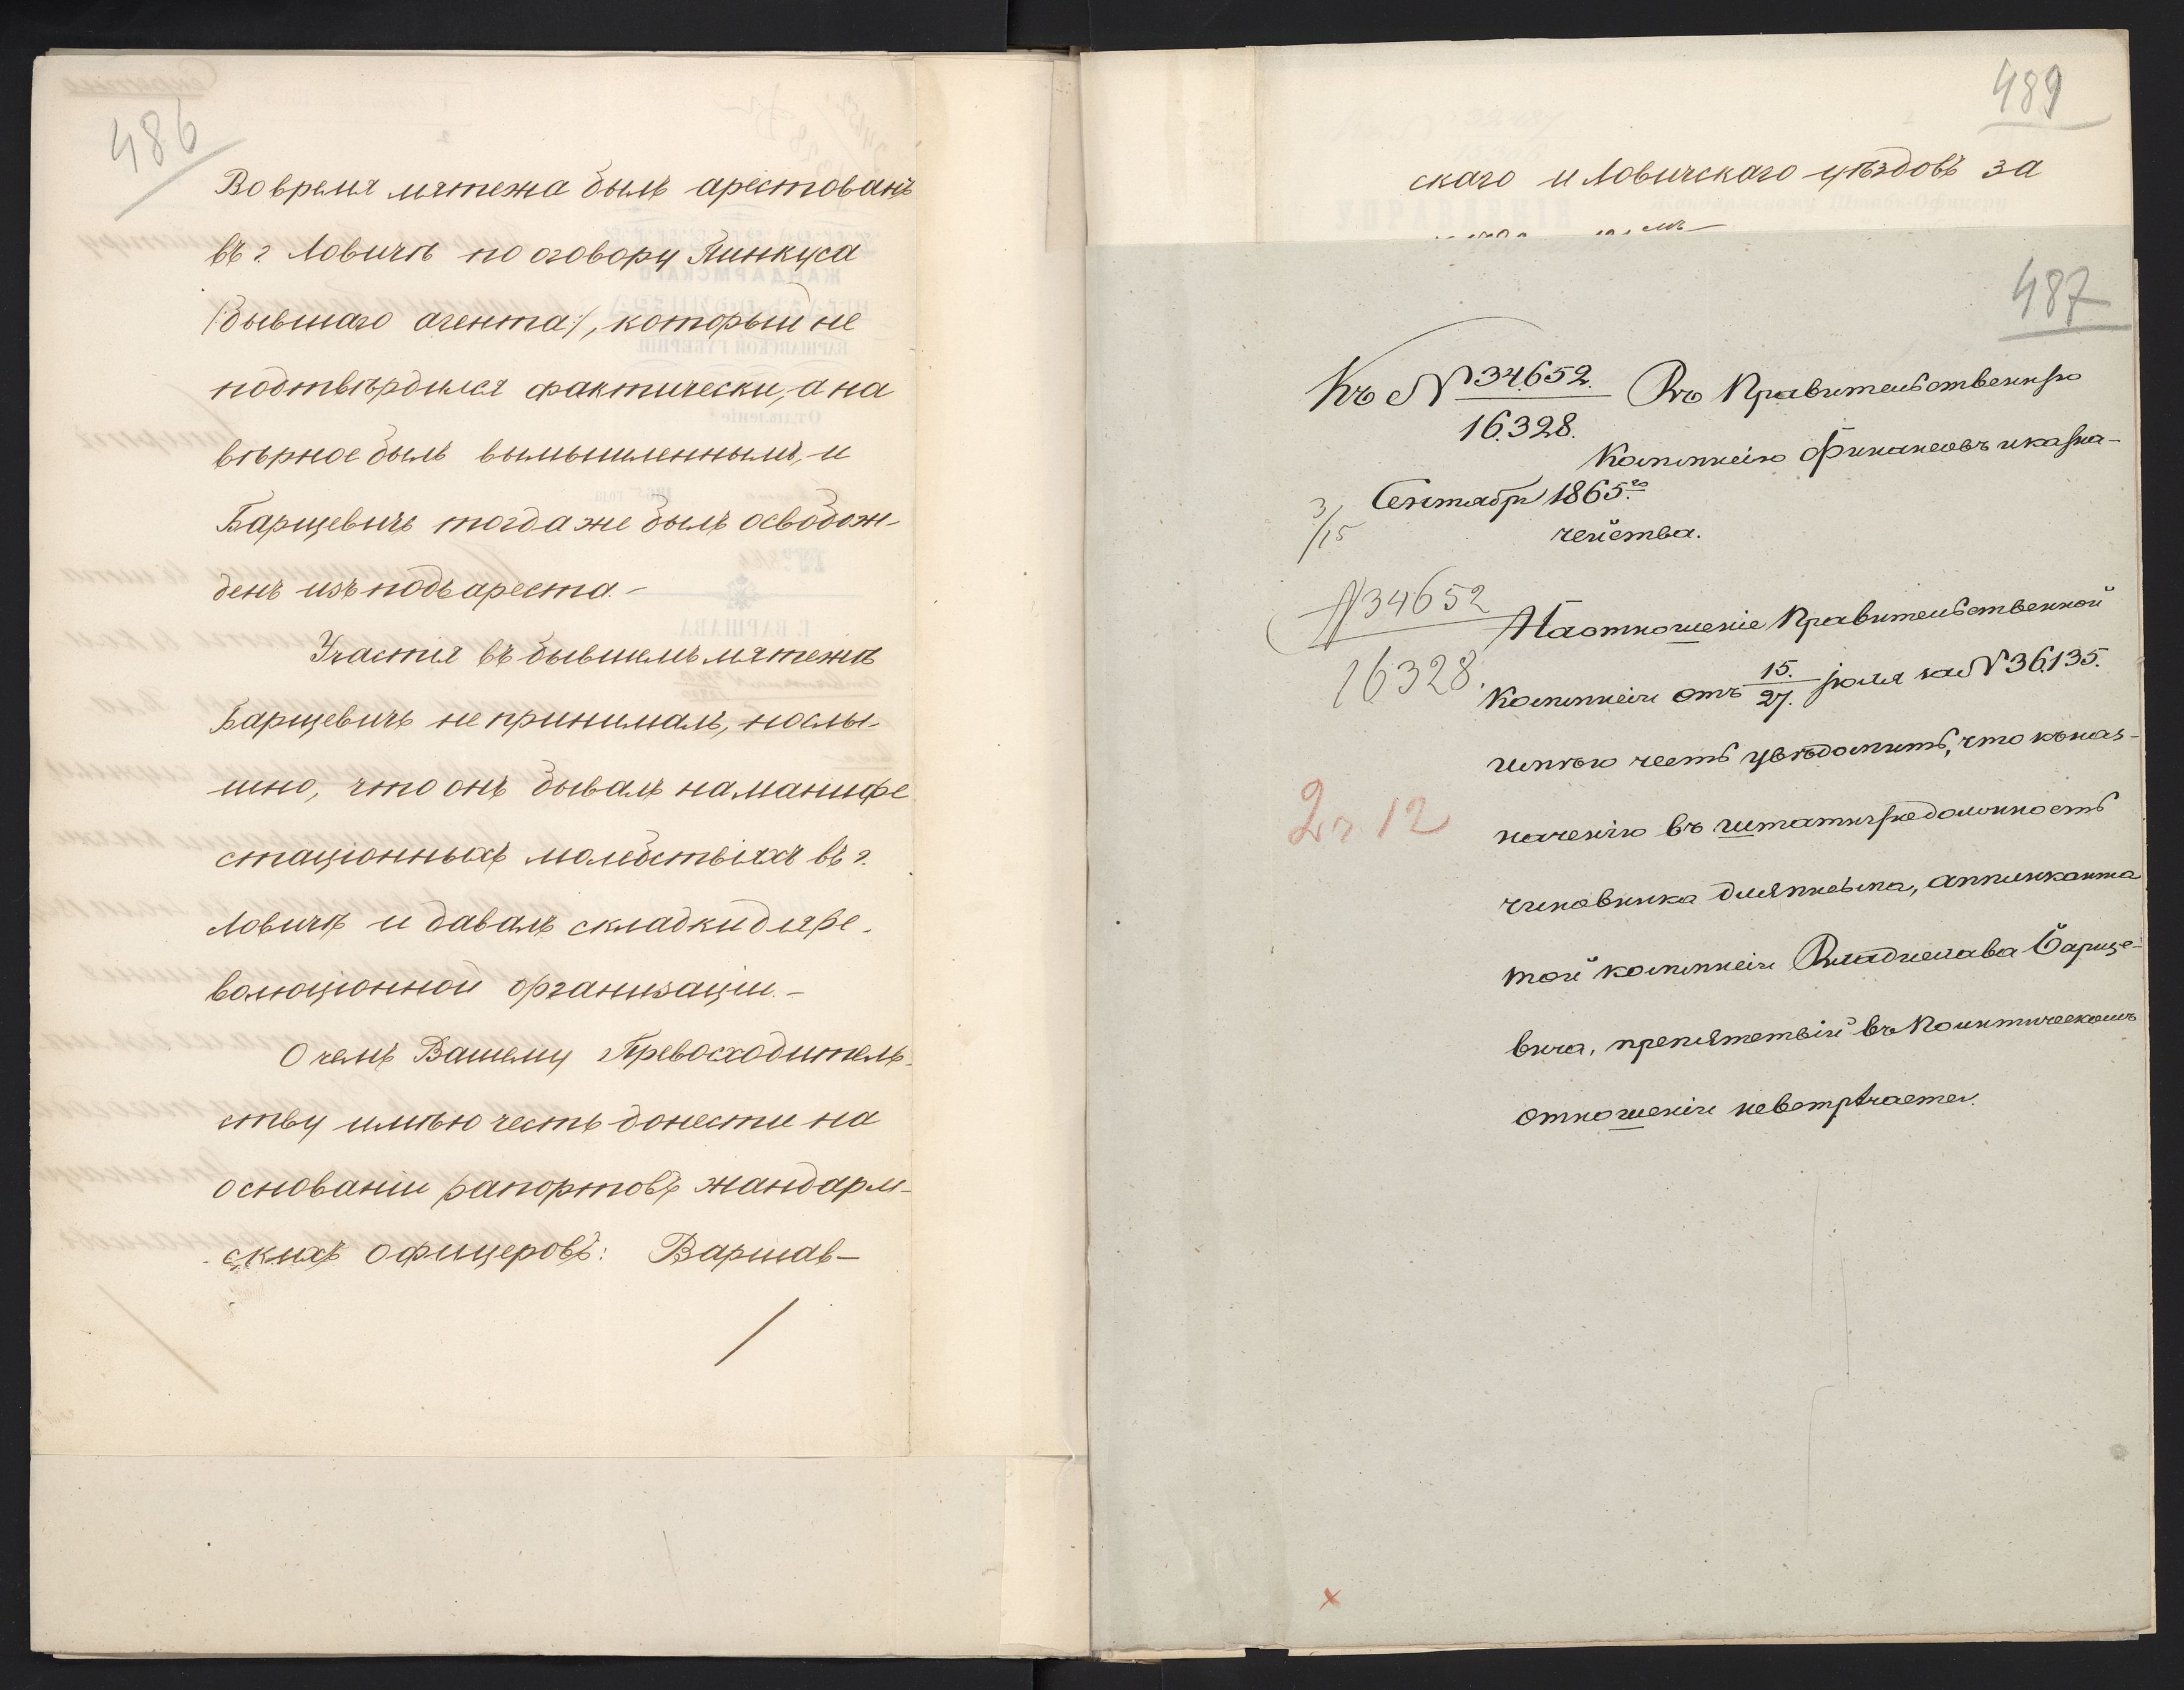 486
Во время мятежа былъ арестованъ
въ г. Ловичѣ по оговору Пинкуса
/:бывшаго агента:/, который не
подтвѣрдился фактически, а на
вѣрное былъ вымышленнымъ, и
Барщевичъ тогда же былъ освобож-
денъ изъ подъ ареста.-
Участія въ бывшемъ мятежѣ
Барщевичъ не принималъ, но слы-
шно, что онъ бывалъ на манифе
стаціонныхъ молебствіяхъ въ г.
Ловичѣ и давалъ складки для ре-
волюціонной организаціи.-
О чемъ Вашему Превосходитель-
ству имѣю честь донести на
основаніи рапортовъ жандарм-
скихъ офицеровъ: Варшав-
489
скаго и Ловичскаго уѣздовъ за
487
Къ № 34652. Въ Правительственную
16328.
Коммисію Финансовъ и казна-
3/15 Сентября 1865 го
чейства.
№ 34652
16328.
На отношеніе Правительственной
Коммисіи отъ 15./27. Іюля за № 36135.
имѣю честь увѣдомить, что къ наз-
наченію въ штатную должность
2 г. 12
чиновника для письма, аппликанта
той коммисіи Владислава Барще-
вича, препятствій въ Политическомъ
отношеніи не встрѣчается.